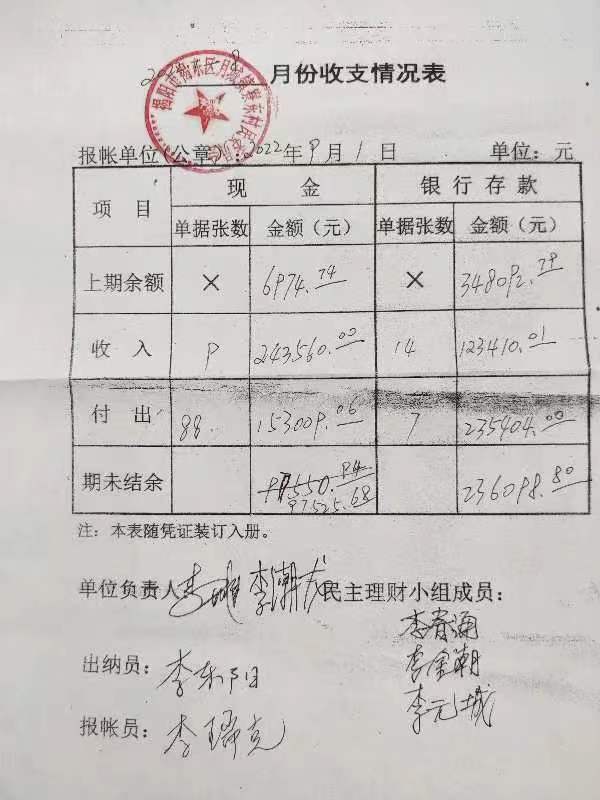 8月份收支情况表
揭阳市揭东区月城镇 东村民委员会
报帐单位(公章):2022年9月1日 单位:元
项目 现金 银行存款
单据张数 金额(元) 单据张数 金额(元)
上期余额 × 6974.74 × 348092.79
收入 9 243560.00 14 123410.01
付出 88. 153009.06 7 235404.00
期未结余 97550.94 236098.80
97525.68
注:本表随凭证装订入册。
单位负责人 民主理财小组成员:
李春涌
李金潮
李元城
出纳员:李东阳
报帐员:李瑞克